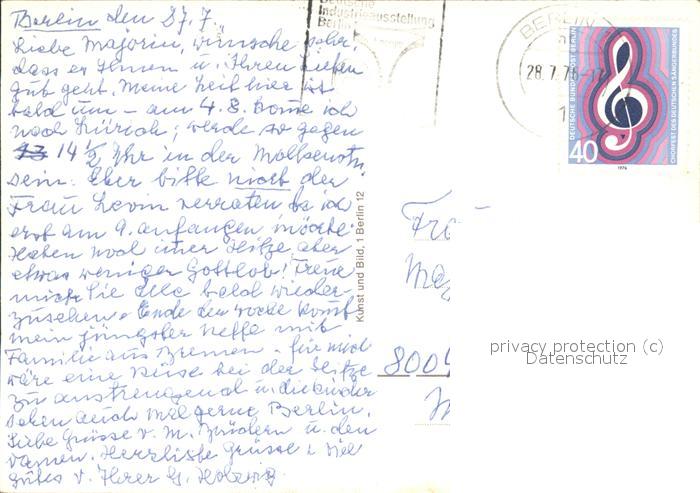 Berlin den 27. 7.
Liebe Majorin, wünsche sehr,
dass es Ihnen u. Ihren Lieben
gut geht. Meine Zeit hier ist
bald um – am 4. 8. komme ich
nach Zürich; werde so gegen
14½ Uhr in der
sein. Aber bitte nicht der
Frau Levin verraten da ich
erst am 9. anfangen möchte.
Haben noch immer Hitze aber
etwas weniger Gottlob! Freue
mich Sie alle bald wieder-
zusehen. Ende der Woche kommt
mein jüngster Neffe mit
Familie aus Bremen. Für mich
wäre eine Reise bei der Hitze
zu anstrengend u. die Kinder
sehen auch mal gerne Berlin.
Liebe Grüsse v. m. Brüdern u. den
Damen. Herzliche Grüsse u. viel
Gutes v. Ihrer G.
Kunst und Bild, 1 Berlin 12
Deutsche
Industrieausstellung
Berlin
BERLIN
28. 7. 76
DEUTSCHE BUNDESPOST BERLIN
CHORFEST DES DEUTSCHEN SÄNGERBUNDES
40
1976
8004
privacy protection (c)
Datenschutz